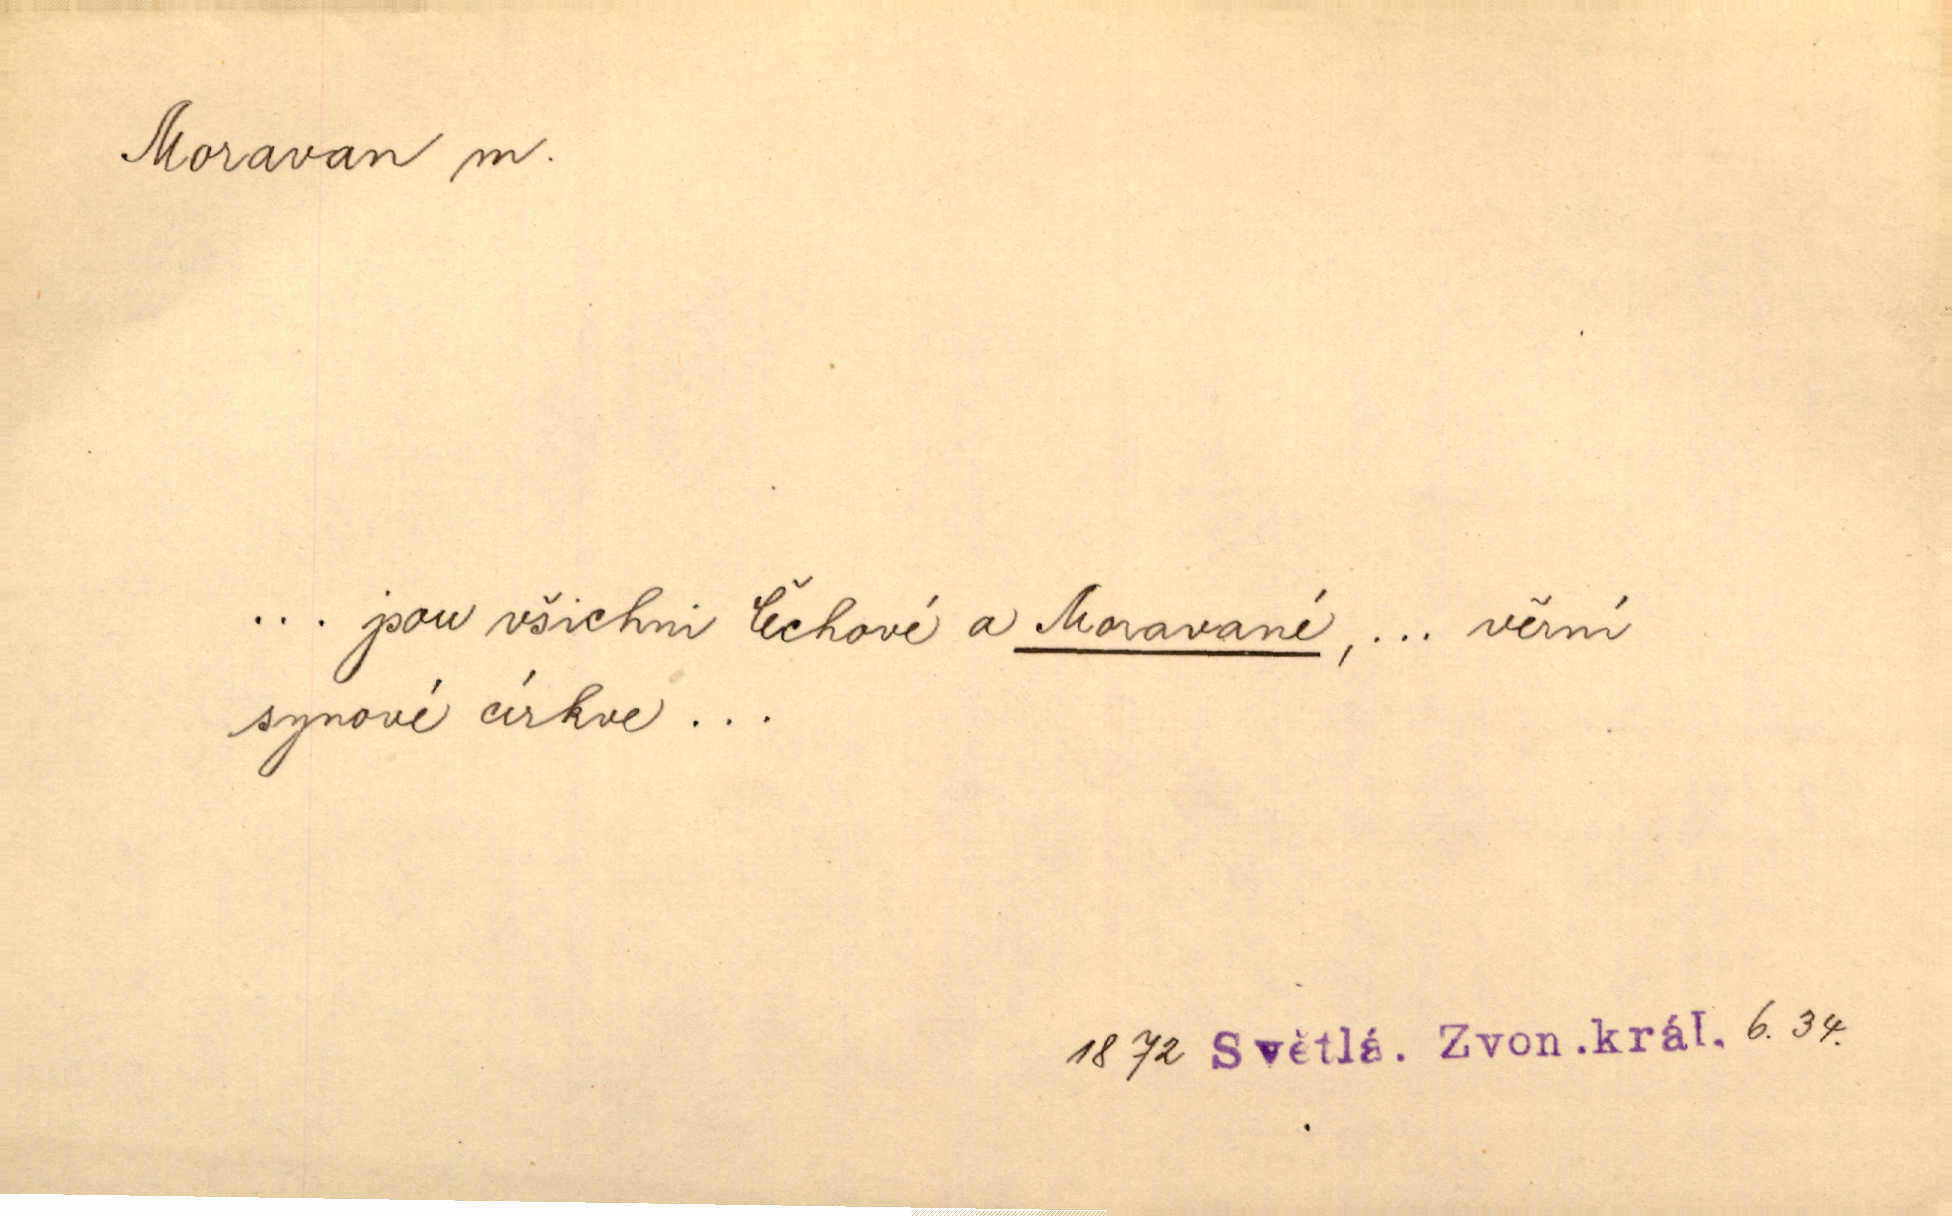 Moravan m.
... jsou všichni Čechové a Moravané, ... věrní
synové církve ...
1872 Světlá. Zvon.král. 6. 34.